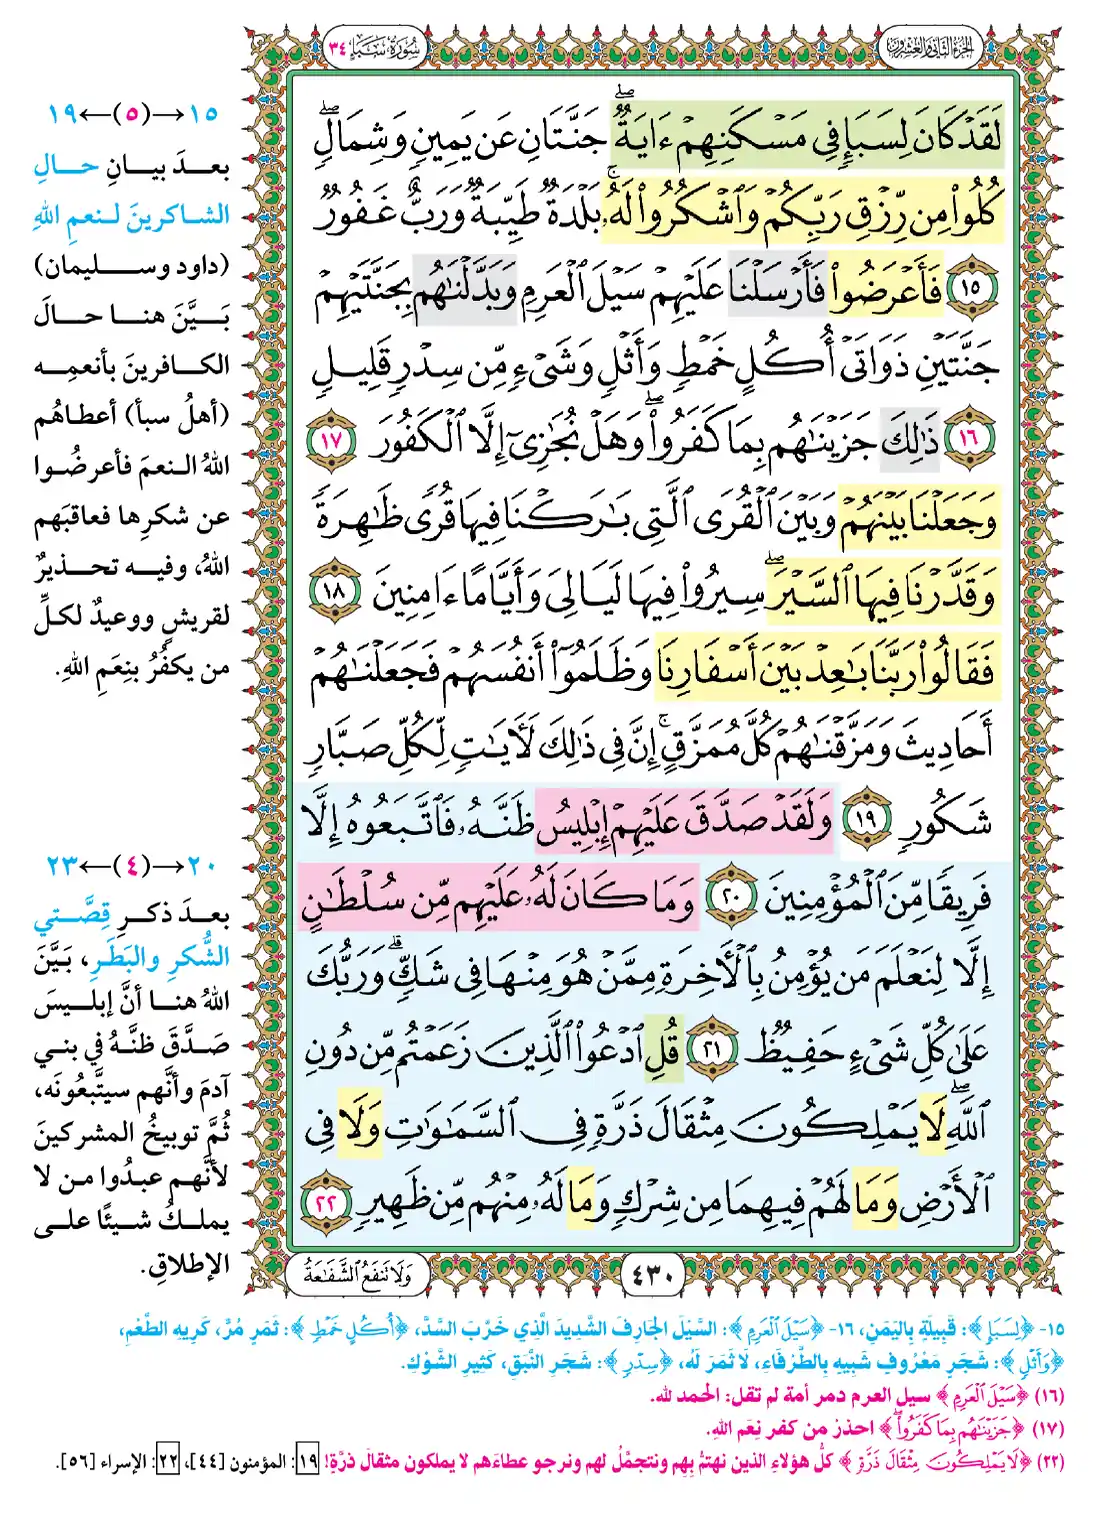 الجزء الثاني والعشرون
سورة سبإ ٣٤
لَقَدْ كَانَ لِسَبَإٍ فِى مَسْكَنِهِمْ ءَايَةٌ ۖ جَنَّتَانِ عَن يَمِينٍ وَشِمَالٍ ۖ
كُلُوا۟ مِن رِّزْقِ رَبِّكُمْ وَٱشْكُرُوا۟ لَهُۥ ۚ بَلْدَةٌ طَيِّبَةٌ وَرَبٌّ غَفُورٌ
١٥ فَأَعْرَضُوا۟ فَأَرْسَلْنَا عَلَيْهِمْ سَيْلَ ٱلْعَرِمِ وَبَدَّلْنَـٰهُم بِجَنَّتَيْهِمْ
جَنَّتَيْنِ ذَوَاتَىْ أُكُلٍ خَمْطٍ وَأَثْلٍ وَشَىْءٍ مِّن سِدْرٍ قَلِيلٍ
١٦ ذَٰلِكَ جَزَيْنَـٰهُم بِمَا كَفَرُوا۟ ۖ وَهَلْ نُجَـٰزِىٓ إِلَّا ٱلْكَفُورَ ١٧
وَجَعَلْنَا بَيْنَهُمْ وَبَيْنَ ٱلْقُرَى ٱلَّتِى بَـٰرَكْنَا فِيهَا قُرًى ظَـٰهِرَةً
وَقَدَّرْنَا فِيهَا ٱلسَّيْرَ ۖ سِيرُوا۟ فِيهَا لَيَالِىَ وَأَيَّامًا ءَامِنِينَ ١٨
فَقَالُوا۟ رَبَّنَا بَـٰعِدْ بَيْنَ أَسْفَارِنَا وَظَلَمُوٓا۟ أَنفُسَهُمْ فَجَعَلْنَـٰهُمْ
أَحَادِيثَ وَمَزَّقْنَـٰهُمْ كُلَّ مُمَزَّقٍ ۚ إِنَّ فِى ذَٰلِكَ لَـَٔايَـٰتٍ لِّكُلِّ صَبَّارٍ
شَكُورٍ ١٩ وَلَقَدْ صَدَّقَ عَلَيْهِمْ إِبْلِيسُ ظَنَّهُۥ فَٱتَّبَعُوهُ إِلَّا
فَرِيقًا مِّنَ ٱلْمُؤْمِنِينَ ٢٠ وَمَا كَانَ لَهُۥ عَلَيْهِم مِّن سُلْطَـٰنٍ
إِلَّا لِنَعْلَمَ مَن يُؤْمِنُ بِٱلْـَٔاخِرَةِ مِمَّنْ هُوَ مِنْهَا فِى شَكٍّ ۗ وَرَبُّكَ
عَلَىٰ كُلِّ شَىْءٍ حَفِيظٌ ٢١ قُلِ ٱدْعُوا۟ ٱلَّذِينَ زَعَمْتُم مِّن دُونِ
ٱللَّهِ ۖ لَا يَمْلِكُونَ مِثْقَالَ ذَرَّةٍ فِى ٱلسَّمَـٰوَٰتِ وَلَا فِى
ٱلْأَرْضِ وَمَا لَهُمْ فِيهِمَا مِن شِرْكٍ وَمَا لَهُۥ مِنْهُم مِّن ظَهِيرٍ ٢٢
وَلَا تَنفَعُ ٱلشَّفَـٰعَةُ
٤٣٠
١٥→(٥)←١٩
بعدَ بيانِ حالِ
الشاكرينَ لنعمِ اللهِ
(داود وسليمان)
بَيَّنَ هنا حالَ
الكافرينَ بأنعمِه
(أهلُ سبأ) أعطاهُم
اللهُ النعمَ فأعرضُوا
عن شكرِها فعاقبَهم
اللهُ، وفيه تحذيرٌ
لقريشٍ ووعيدٌ لكلِّ
من يكفُرُ بنِعَمِ اللهِ.
٢٠→(٤)←٢٣
بعدَ ذكرِ قِصَّتي
الشُّكرِ والبَطَرِ، بَيَّنَ
اللهُ هنا أنَّ إبليسَ
صَدَّقَ ظنَّهُ في بني
آدمَ وأنَّهم سيتَّبعُونَه،
ثُمَّ توبيخُ المشركينَ
لأنَّهم عبدُوا من لا
يملكُ شيئًا على
الإطلاقِ.
١٥- ﴿لِسَبَإٍ﴾: قَبِيلَةٍ بِاليَمَنِ، ١٦- ﴿سَيْلَ ٱلْعَرِمِ﴾: السَّيْلَ الجَارِفَ الشَّدِيدَ الَّذِي خَرَّبَ السَّدَّ، ﴿أُكُلٍ خَمْطٍ﴾: ثَمَرٍ مُرٍّ، كَرِيهِ الطَّعْمِ،
﴿وَأَثْلٍ﴾: شَجَرٍ مَعْرُوفٍ شَبِيهٍ بِالطَّرْفَاءِ، لَا ثَمَرَ لَهُ، ﴿سِدْرٍ﴾: شَجَرِ النَّبَقِ، كَثِيرِ الشَّوْكِ.
(١٦) ﴿سَيْلَ ٱلْعَرِمِ﴾ سيل العرم دمر أمة لم تقل: الحمد لله.
(١٧) ﴿جَزَيْنَـٰهُم بِمَا كَفَرُوا۟ ۖ﴾ احذر من كفر نِعَم اللهِ.
(٢٢) ﴿لَا يَمْلِكُونَ مِثْقَالَ ذَرَّةٍ﴾ كلُّ هؤلاءِ الذين نهتمُّ بِهِم ونتجمَّلُ لهم ونرجو عطاءَهم لا يملكون مثقالَ ذرَّةٍ! ١٩: المؤمنون [٤٤]، ٢٢: الإسراء [٥٦].